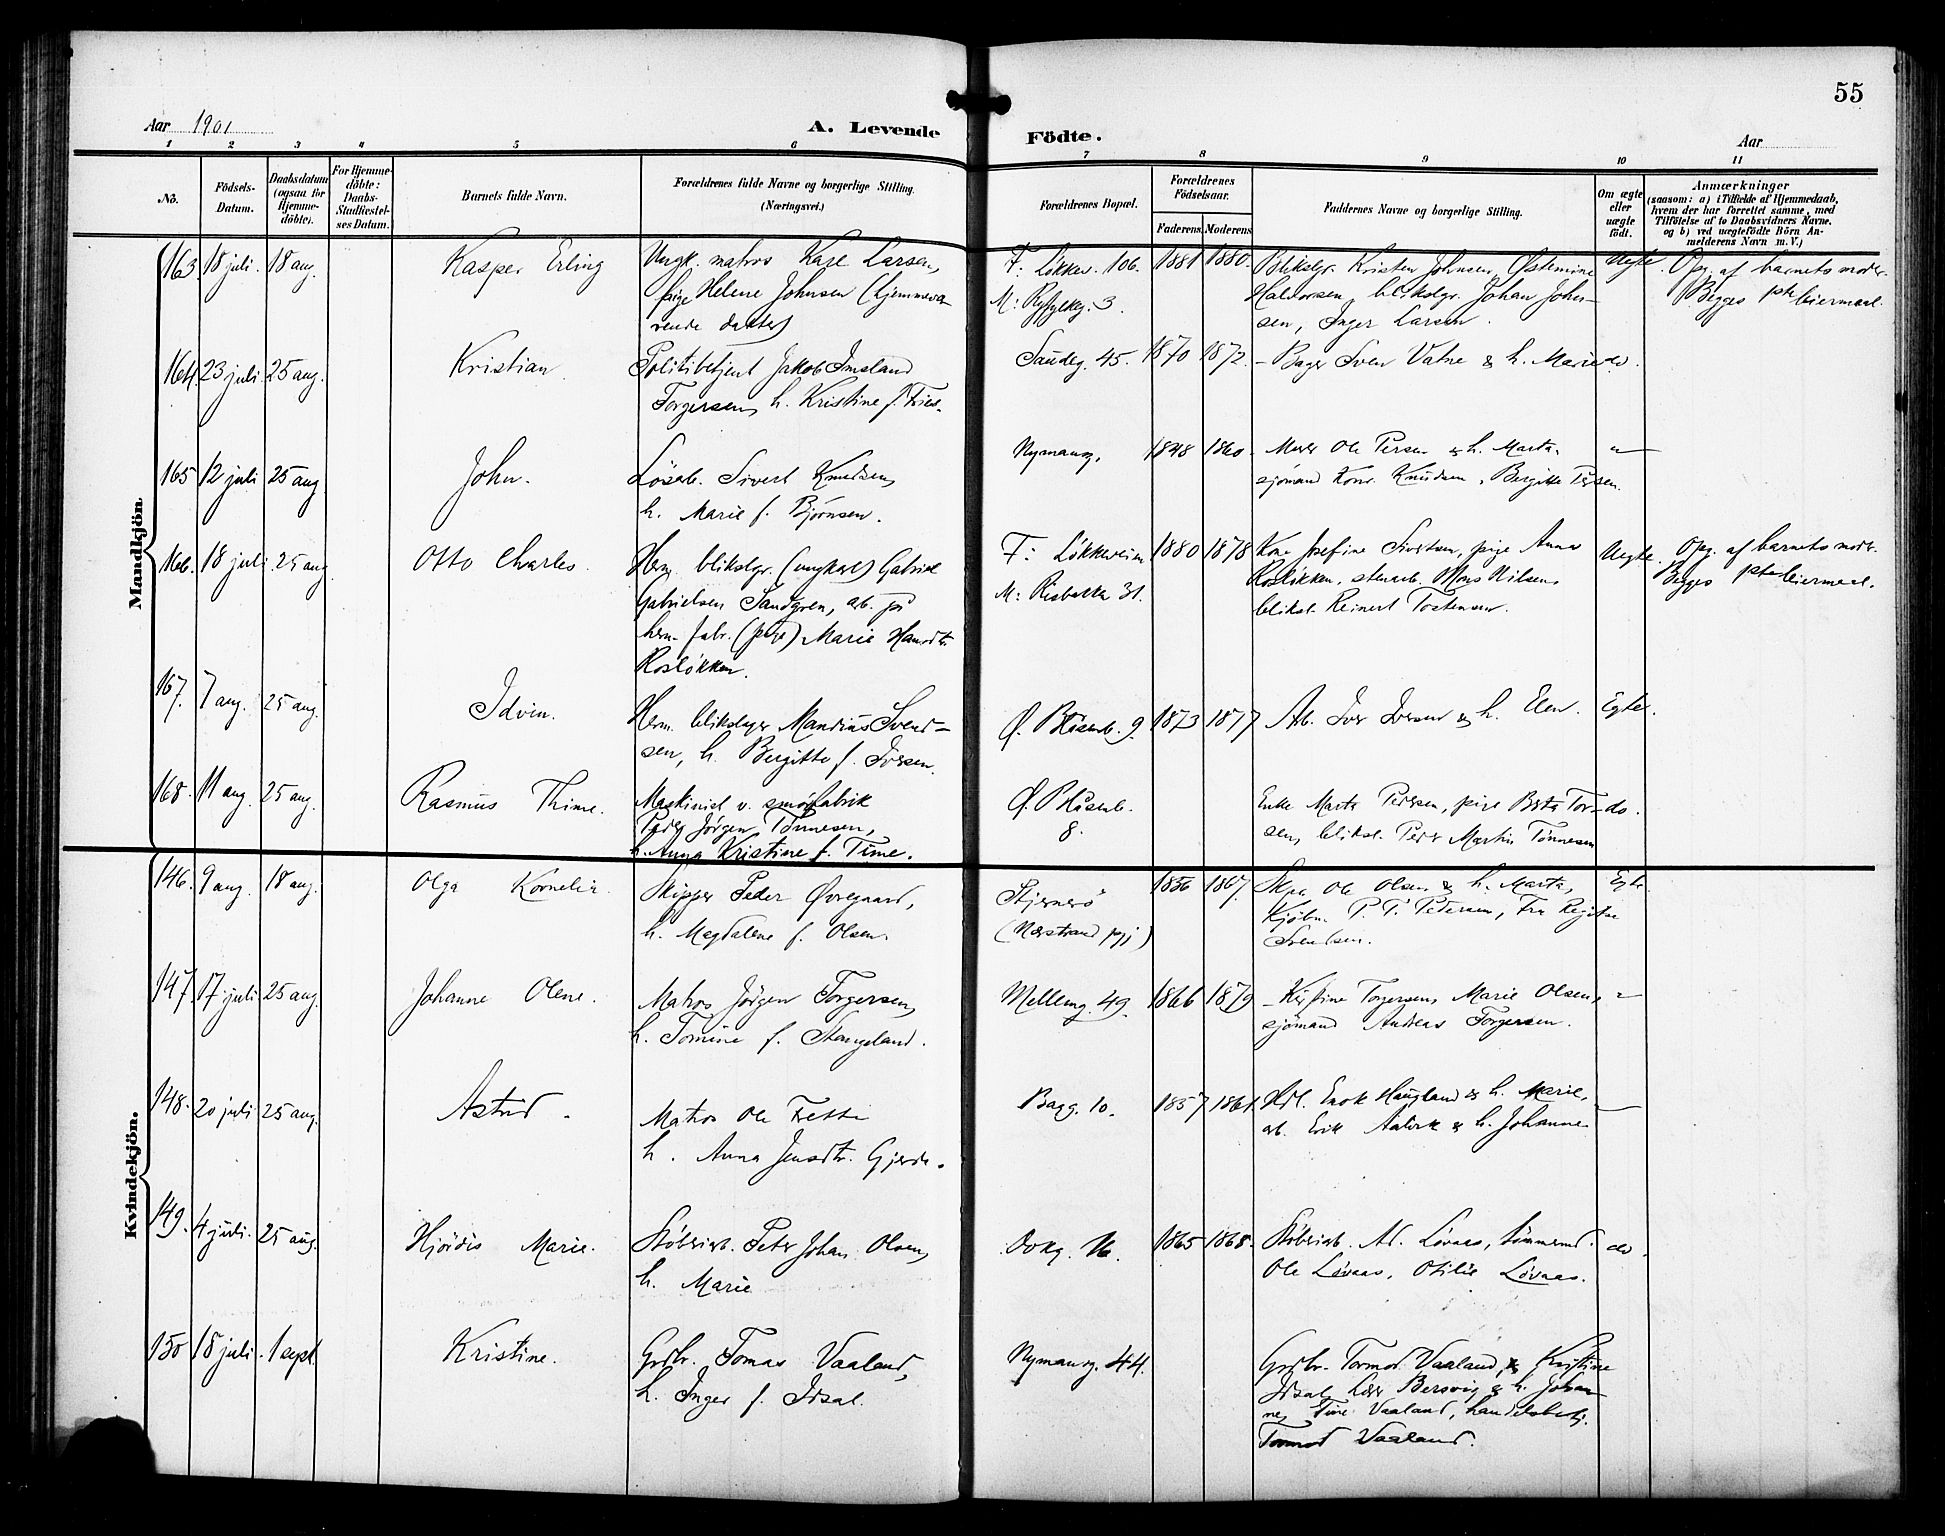 55
Aar 1901
A. Levende Födte.
Aar
1 2 3 4 5 6 7 8 9 10 11
No.
Födsels-
Datum.
Daabsdatum
(ogsaa for
Hjemme-
döbte).
For Hjemme-
döbte:
Daabs-
Stadfæstel-
ses Datum.
Barnets fulde Navn.
Forældrenes fulde Navne og borgerlige Stilling.
(Næringsvei.)
Forældrenes Bopæl.
Forældrenes
Födselsaar.
Faderens Moderens
Faddernes Navne og borgerlige Stilling.
Om ægte
eller
uægte
födt.
Anmærkninger
(saasom: a) i Tilfælde af Hjemmedaab,
hvem der har forrettet samme, med
Tilföielse af to Daabsvidners Navne,
og b) ved uægtefödte Börn An-
melderens Navn m. V.)
Mandkjön.
163 18 juli. 18 aug. Kasper Erling
Ungk. matros Karl Larsen,
pige Helene Johnsen (hjemmevæ
rende datter)
F: Løkkev. 106. 1881 1880.
M: Ryfylkeg. 3.
Blikslgr. Kristen Johnsen, Østemine
Haldorsen, blikslgr. Johan John-
sen, Inger Larsen.
Uegte.
Opg. af barnets moder.
Begges 1ste leiermaal.
164. 23 juli 25 aug. Kristian
Politibetjent Jakob Imsland
Torgersen, h. Kristine f. Friis.
Saudeg. 45. 1870 1872.
Bager Sven Vatne & h. Marie do.
165 12 juli 25 aug. John.
Løsarb. Sivert Knudsen,
h. Marie f. Bjørnsen.
Nymansv. 1848 1860.
Ole Persen & h. Marta.
sjømand Konr. Knudsen, Bergitte Persen.
166. 18 juli 25 aug Otto Charles.
Herm. blikslgr. (ungkarl) Gabriel
Gabrielsen Sandgren, arb. på
herm. fabr. (pige) Marie Hansdtr.
Rosløkken.
F: Løkkeveien 1880 1878
M: Risbakk 31.
Kone Josefine Sivertsen, pige Anna
Rosløkken, stenarb. Mons Nilsen,
bliksl. Reinert Tostensen.
Uegte.
Opg. af barnets mod.
Begges 1ste leiermaal.
167. 7 aug. 25 aug. Idvin.
Herm. blikslager Mandius Svend-
sen, h. Bergitte f. Iversen.
Ø. Blåsenb. 9. 1873 1877
Arb. Iver Iversen & h. Elen. Egte.
168. 11 aug. 25 aug. Rasmus Thime.
Maskinist v. smørfabrik
Peder Jørgen Tønnesen,
h. Anna Kristine f. Time.
Ø. Blåsenb.
8.
Enke Marta Pedersen, pige Berta Tor-
sen, bliksl. Peder Martin Tønnesen
do.
Kvindekjön.
146. 9 aug. 18 aug. Olga Kornelia
Skipper Peder Øvregaard,
h. Magdalene f. Olsen.
Stjernerö
(Nærstrand pgj)
1856 1867.
Skpr. Ole Olsen & h. Marta,
Kjøbm. P. T. Pedersen, Fru Regine
Svendsen.
Egte.
147. 17 juli 25 aug. Johanne Olene.
Matros Jörgen Torgersen,
h. Tomine f. Stangeland.
Mellemg. 49. 1866 1879
Kristine Torgersen, Marie Olsen,
sjömand Andreas Torgersen.
148. 20 juli 25 aug. Astrid.
Matros Ole Frette
h. Anna Jensdtr. Gjerde.
Bagg. 10. 1857 1861.
Hdl. Enok Haugland & h. Marie,
arb. Erik Aalvik & h. Johanne
149. 4 juli. 25 aug. Hjördis Marie.
Støberiarb. Peter Johan Olsen,
h. Marie
Dokg. 16. 1865 1868.
Støberiarb. Ad. Lövaas, tömmerm.
Ole Lövaas, Otilie Lövaas.
do.
150 18 juli. 1 sept. Kristine.
Grdbr. Tomas Vaaland,
h. Inger f. Idsal.
Nymansv. 44.
Grdbr. Tormod Vaaland, & Kristine
Idsal, Lærer Bersvig & h. Johan-
ne, Tine Vaaland, handelsbetj.
Tormod Vaaland.